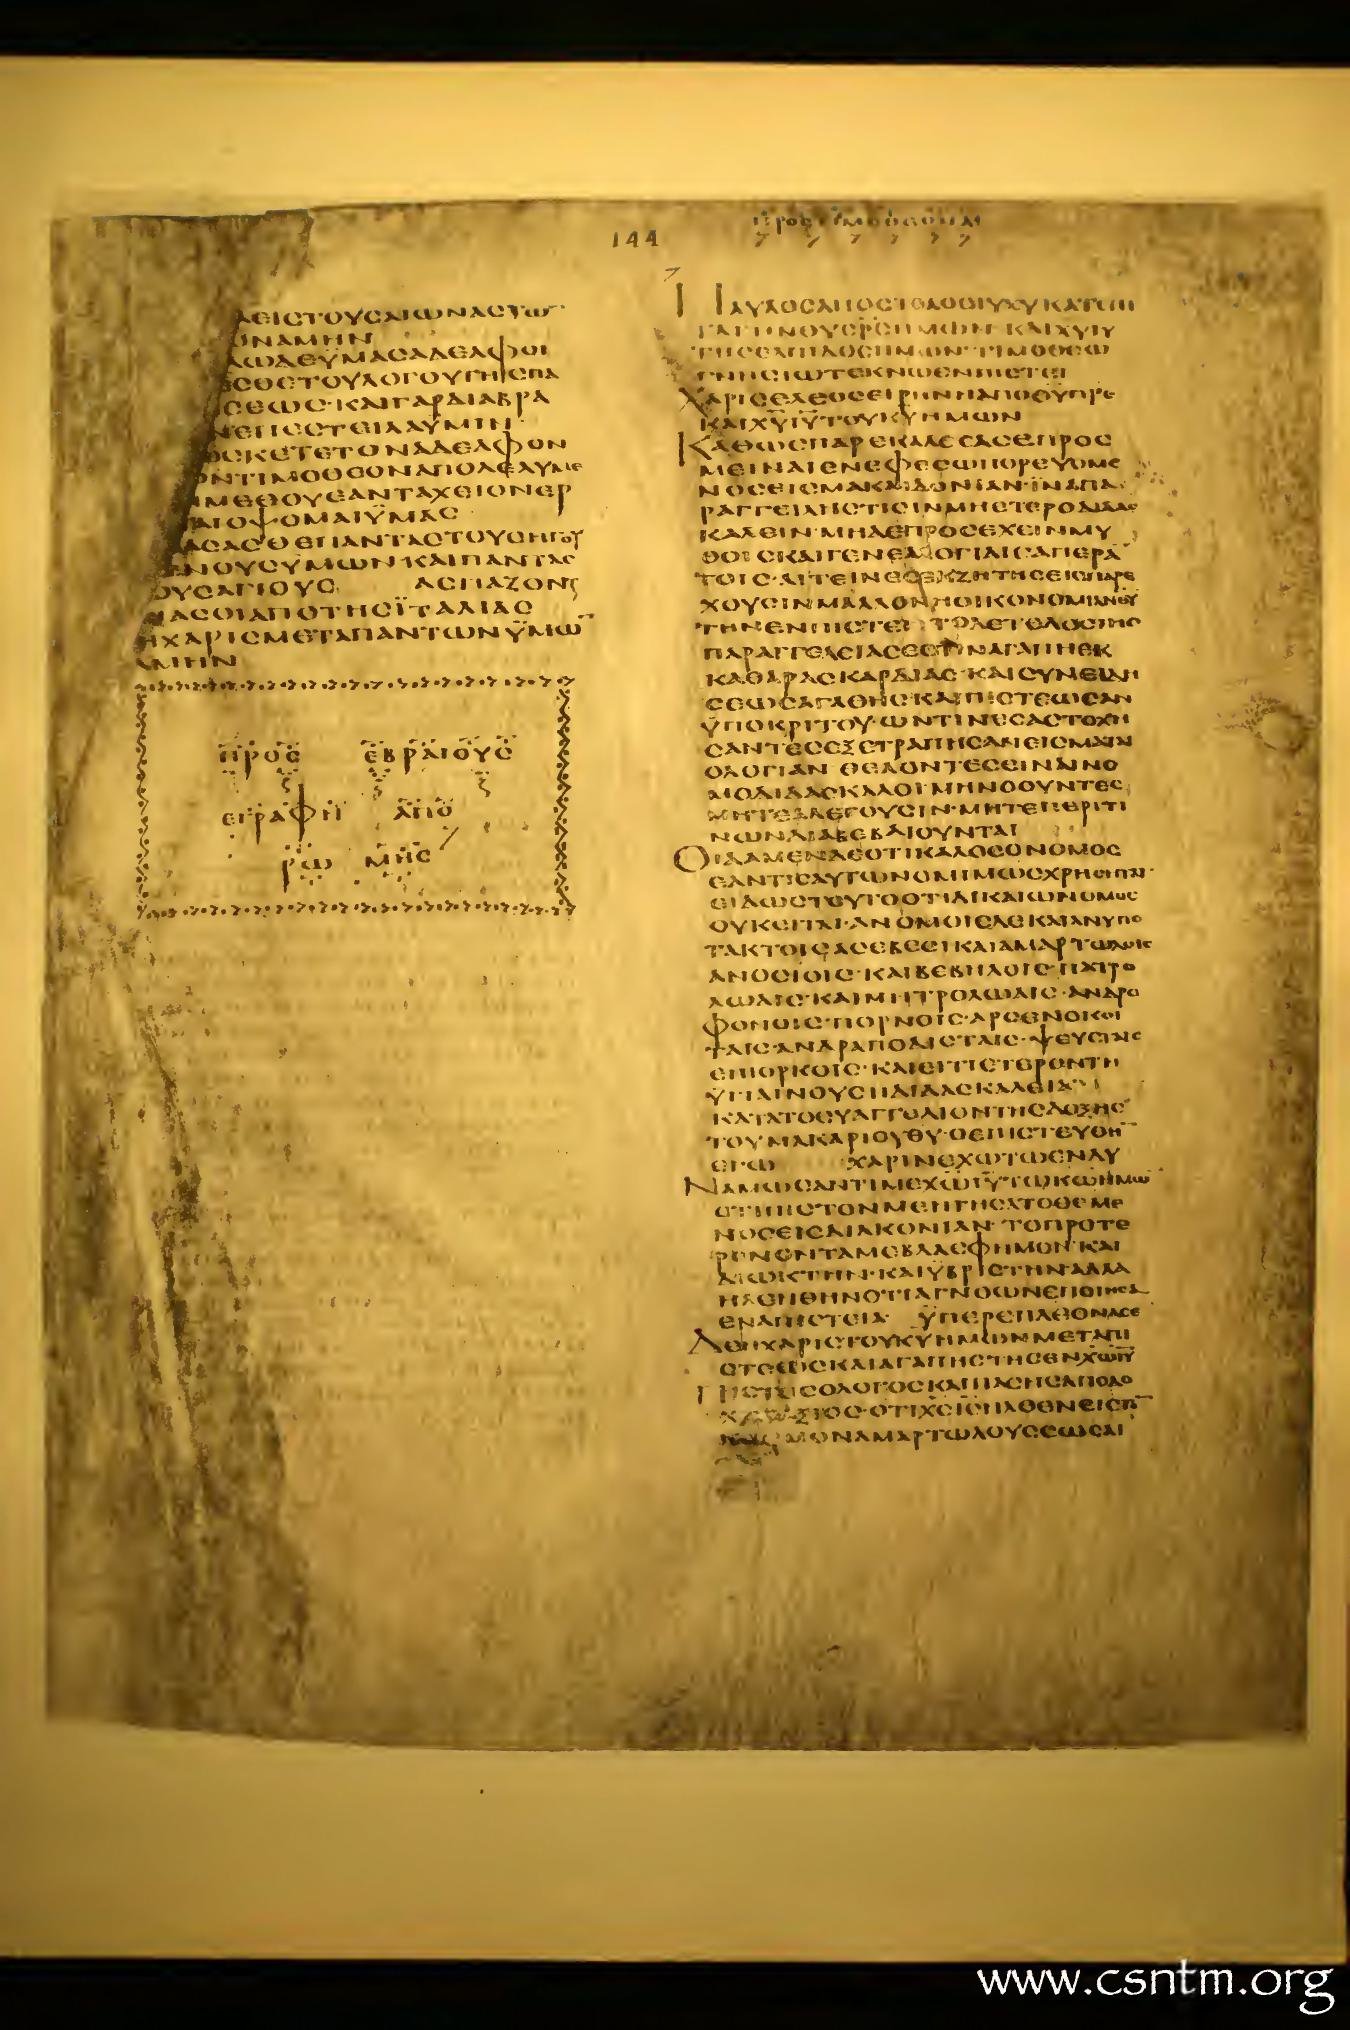 144
ΠΡΟΣ ΤΙΜΟΘΕΟΝ Α
ΔΕΙΣΤΟΥΣΑΙΩΝΑΣΤΩ
ΩΝΑΜΗΝ
ΑΛΩΔΕΫΜΑΣΑΔΕΛΦΟΙ
ΕΣΘΕΤΟΥΛΟΓΟΥΤΗΣΠΑ
ΣΕΩΣ·ΚΑΙΓΑΡΔΙΑΒΡΑ
ΝΕΠΕΣΤΕΙΛΑΫΜΙΝ
ΣΚΕΤΕΤΟΝΑΔΕΛΦΟΝ
ΝΤΙΜΟΘΕΟΝΑΠΟΛΕΛΥΜΕ
ΜΕΘΟΥΕΑΝΤΑΧΕΙΟΝΕΡ
ΑΙΟΨΟΜΑΙΫΜΑΣ
ΑΣΑΣΘΕΠΑΝΤΑΣΤΟΥΣΗΓΟΥ
ΕΝΟΥΣΫΜΩΝ·ΚΑΙΠΑΝΤΑΣ
ΟΥΣΑΓΙΟΥΣ ΑΣΠΑΖΟΝΤ
ΜΑΣΟΙΑΠΟΤΗΣΪΤΑΛΙΑΣ
ΗΧΑΡΙΣΜΕΤΑΠΑΝΤΩΝΫΜΩ
ΑΜΗΝ
ΠΡΟΣ ΕΒΡΑΙΟΥΣ
ΕΓΡΑΦΗ ΑΠΟ
ΡΩΜΗΣ
ΠΑΥΛΟΣΑΠΟΣΤΟΛΟΣΙΥΧΥΚΑΤΕΠΙ
ΤΑΓΗΝΘΥΣΡΣΗΜΩΝ·ΚΑΙΧΥΙΥ
ΤΗΣΕΛΠΙΔΟΣΗΜΩΝ·ΤΙΜΟΘΕΩ
ΓΝΗΣΙΩΤΕΚΝΩΕΝΠΙΣΤΕΙ
ΧΑΡΙΣΕΛΕΟΣΕΙΡΗΝΗΑΠΟΘΥΠΡΣ
ΚΑΙΧΥΙΥΤΟΥΚΥΗΜΩΝ
ΚΑΘΩΣΠΑΡΕΚΑΛΕΣΑΣΕΠΡΟΣ
ΜΕΙΝΑΙΕΝΕΦΕΣΩΠΟΡΕΥΟΜΕ
ΝΟΣΕΙΣΜΑΚΑΙΔΟΝΙΑΝ·ΪΝΑΠΑ
ΡΑΓΓΕΙΛΗΣΤΙΣΙΝΜΗΕΤΕΡΟΔΙΔΑΣ
ΚΑΛΕΙΝ·ΜΗΔΕΠΡΟΣΕΧΕΙΝΜΥ
ΘΟΙΣΚΑΙΓΕΝΕΑΛΟΓΙΑΙΣΑΠΕΡΑ
ΤΟΙΣ·ΑΙΤΕΙΝΕΣΕΚΖΗΤΗΣΕΙΣΠΑΡΕ
ΧΟΥΣΙΝΜΑΛΛΟΝΗΟΙΚΟΝΟΜΙΑΝΘΥ
ΤΗΝΕΝΠΙΣΤΕΙ ΤΟΔΕΤΕΛΟΣΤΗΣ
ΠΑΡΑΓΓΕΛΕΙΑΣΕΣΤΙΝΑΓΑΠΗΕΚ
ΚΑΘΑΡΑΣΚΑΡΔΙΑΣ·ΚΑΙΣΥΝΕΙΔΗ
ΣΕΩΣΑΓΑΘΗΣΚΑΙΠΙΣΤΕΩΣΑΝ
ΫΠΟΚΡΙΤΟΥ·ΩΝΤΙΝΕΣΑΣΤΟΧΗ
ΣΑΝΤΕΣΕΞΕΤΡΑΠΗΣΑΝΕΙΣΜΑΤΑΙ
ΟΛΟΓΙΑΝ ΘΕΛΟΝΤΕΣΕΙΝΑΙΝΟ
ΜΟΔΙΔΑΣΚΑΛΟΙΜΗΝΟΟΥΝΤΕΣ
ΜΗΤΕΑΛΕΓΟΥΣΙΝ·ΜΗΤΕΠΕΡΙΤΙ
ΝΩΝΔΙΑΒΕΒΑΙΟΥΝΤΑΙ
ΟΙΔΑΜΕΝΔΕΟΤΙΚΑΛΟΣΟΝΟΜΟΣ
ΕΑΝΤΙΣΑΥΤΩΝΟΜΙΜΩΣΧΡΗΣΗΤΑΙ·
ΕΙΔΩΣΤΟΥΤΟΟΤΙΔΙΚΑΙΩΝΟΜΟΣ
ΟΥΚΕΙΤΑΙ·ΑΝΟΜΟΙΣΔΕΚΑΙΑΝΥΠΟ
ΤΑΚΤΟΙΣΑΣΕΒΕΣΙΚΑΙΑΜΑΡΤΩΛΟΙΣ
ΑΝΟΣΙΟΙΣ·ΚΑΙΒΕΒΗΛΟΙΣ·ΠΑΤΡΟ
ΛΩΑΙΣ·ΚΑΙΜΗΤΡΟΛΩΑΙΣ·ΑΝΔΡΟ
ΦΟΝΟΙΣ·ΠΟΡΝΟΙΣ·ΑΡΣΕΝΟΚΟΙ
ΤΑΙΣ·ΑΝΔΡΑΠΟΔΙΣΤΑΙΣ·ΨΕΥΣΤΑΙΣ
ΕΠΙΟΡΚΟΙΣ·ΚΑΙΕΙΤΙΕΤΕΡΟΝΤΗ
ΫΓΙΑΙΝΟΥΣΗΔΙΔΑΣΚΑΛΕΙΑ
ΚΑΤΑΤΟΕΥΑΓΓΕΛΙΟΝΤΗΣΔΟΞΗΣ
ΤΟΥΜΑΚΑΡΙΟΥΘΥ·ΟΕΠΙΣΤΕΥΘΗ
ΕΓΩ ΧΑΡΙΝΕΧΩΤΩΕΝΔΥ
ΝΑΜΩΣΑΝΤΙΜΕΧΩΙΥΤΩΚΩΗΜΩ
ΟΤΙΠΙΣΤΟΝΜΕΗΓΗΣΑΤΟΘΕΜΕ
ΝΟΣΕΙΣΔΙΑΚΟΝΙΑΝ·ΤΟΠΡΟΤΕ
ΡΟΝΟΝΤΑΜΕΒΛΑΣΦΗΜΟΝ·ΚΑΙ
ΔΙΩΚΤΗΝ·ΚΑΙΫΒΡΙΣΤΗΝ·ΑΛΛΑ
ΗΛΕΗΘΗΝΟΤΙΑΓΝΟΩΝΕΠΟΙΗΣΑ
ΕΝΑΠΙΣΤΕΙΑ ΫΠΕΡΕΠΛΕΟΝΑΣΕ
ΔΕΗΧΑΡΙΣΤΟΥΚΥΗΜΩΝΜΕΤΑΠΙ
ΣΤΕΩΣΚΑΙΑΓΑΠΗΣΤΗΣΕΝΧΩΙΥ
ΠΙΣΤΟΣΟΛΟΓΟΣΚΑΙΠΑΣΗΣΑΠΟΔΟ
ΧΗΣΑΞΙΟΣ·ΟΤΙΧΣΙΣΗΛΘΕΝΕΙΣΤ
ΚΟΣΜΟΝΑΜΑΡΤΩΛΟΥΣΣΩΣΑΙ
www.csntm.org